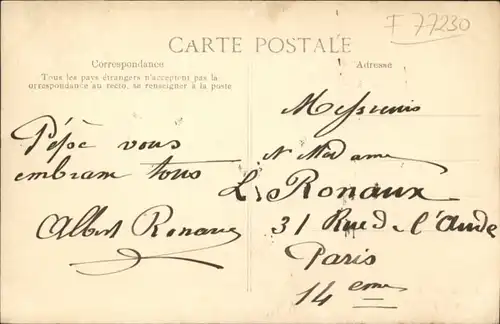 F 77230
CARTE POSTALE
Correspondance
Tous les pays étrangers n'acceptent pas la
orrespondance au recto, se renseigner à la poste
Adresse
Pépé vous
embrass tous
Albert Ronaux
Messieurs
et Madame
L. Ronaux
31 Rue de l'Aude
Paris
14 eme